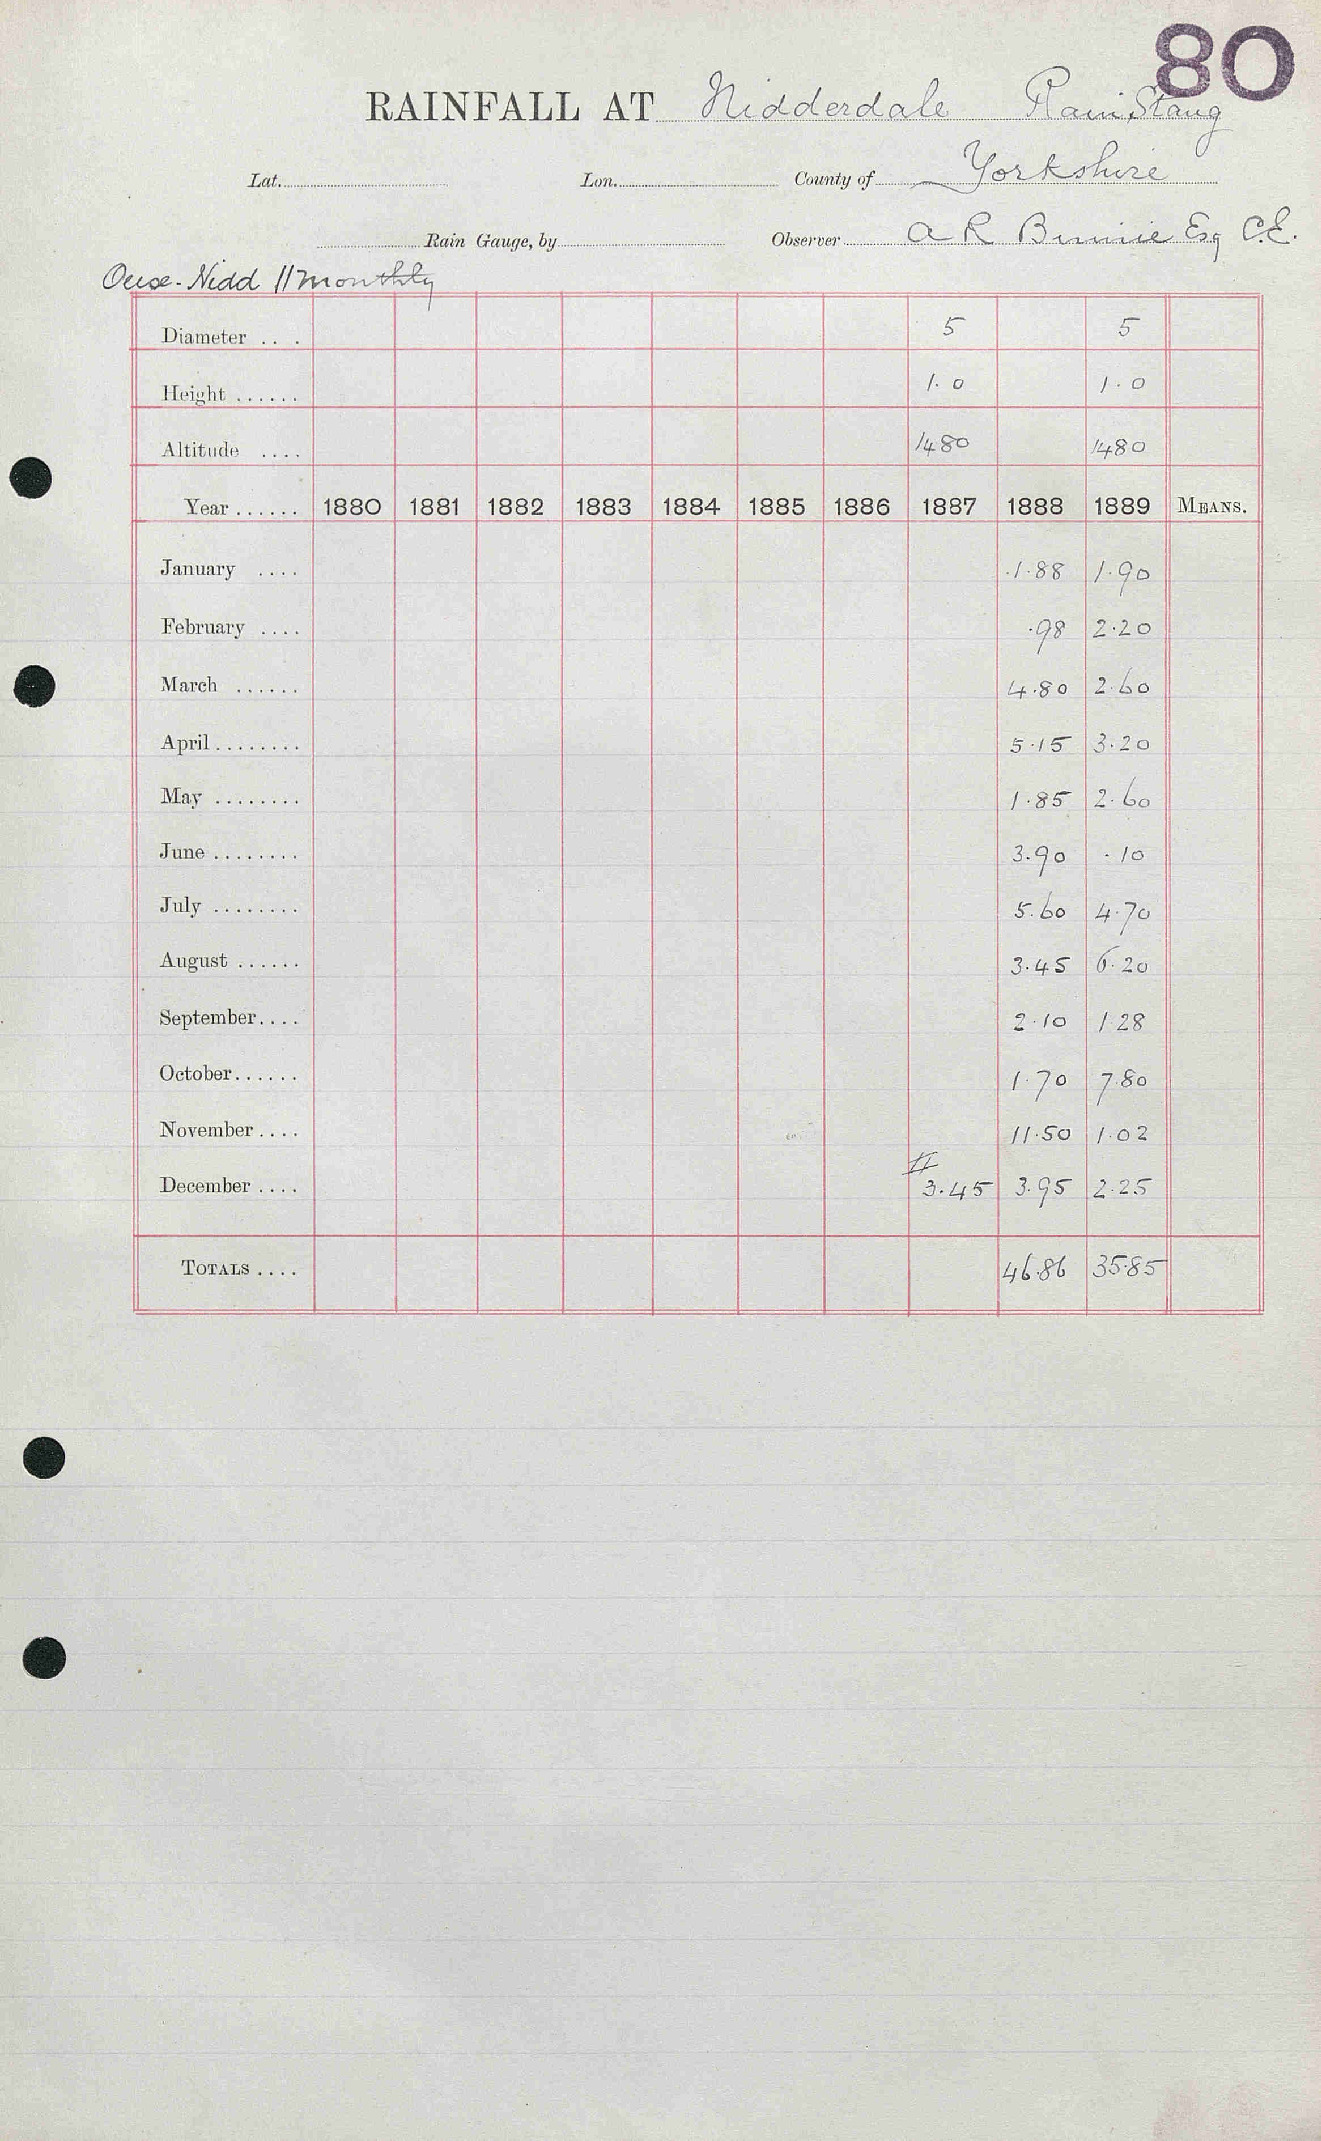 80
RAINFALL AT Nidderdale Rain Stang
Lat. Lon. County of Yorkshire
Rain Gauge, by Observer A R Binnie Esq C.E.
Ouse-Nidd 11 monthly
Diameter . . . 5 5
Height . . . . . . 1.0 1.0
Altitude . . . . 1480 1480
Year . . . . . . 1880 1881 1882 1883 1884 1885 1886 1887 1888 1889 MEANS.
January . . . . 1.88 1.90
February . . . . .98 2.20
March . . . . . . 4.80 2.60
April . . . . . . . . 5.15 3.20
May . . . . . . . . 1.85 2.60
June . . . . . . . . 3.90 .10
July . . . . . . . . 5.60 4.70
August . . . . . . 3.45 6.20
September . . . . 2.10 1.28
October . . . . . . 1.70 7.80
November . . . . 11.50 1.02
December . . . . 3.45 3.95 2.25
TOTALS . . . . 46.86 35.85